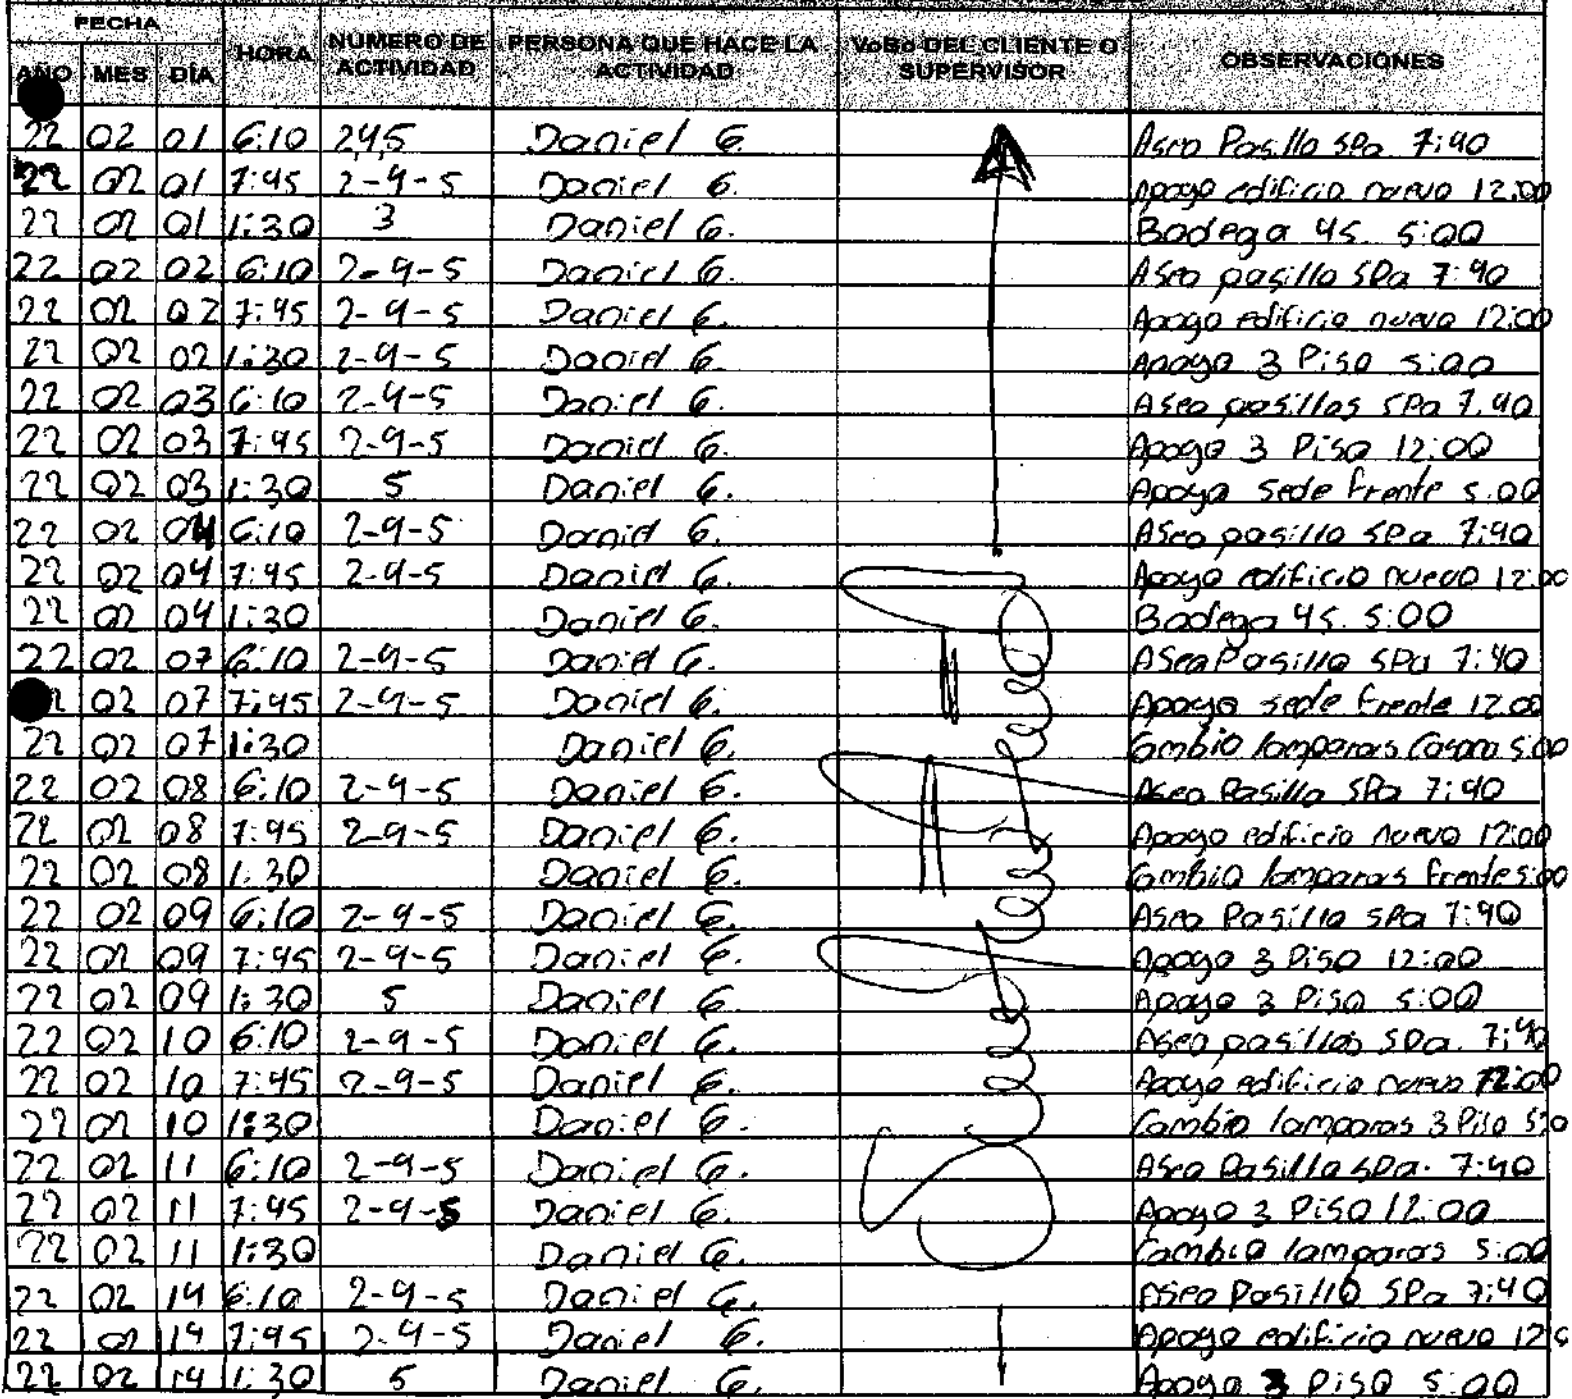 FECHA HORA NUMERO DE ACTIVIDAD PERSONA QUE HACE LA ACTIVIDAD VoBo DEL CLIENTE O SUPERVISOR OBSERVACIONES
AÑO MES DÍA
22 02 01 6:10 2,4,5 Daniel G. Aseo Pasillo spa 7:40
22 02 01 7:45 2-4-5 Daniel G. Apoyo edificio nuevo 12:00
22 02 01 1:30 3 Daniel G. Bodega 45. 5:00
22 02 02 6:10 2-4-5 Daniel G. Aseo pasillo spa 7:40
22 02 02 7:45 2-4-5 Daniel G. Apoyo edificio nuevo 12:00
22 02 02 1:30 2-4-5 Daniel G. Apoyo 3 Piso 5:00
22 02 03 6:10 2-4-5 Daniel G. Aseo pasillos spa 7:40
22 02 03 7:45 2-4-5 Daniel G. Apoyo 3 Piso 12:00
22 02 03 1:30 5 Daniel G. Apoyo sede frente 5:00
22 02 04 6:10 2-4-5 Daniel G. Aseo pasillo spa 7:40
22 02 04 7:45 2-4-5 Daniel G. Apoyo edificio nuevo 12:00
22 02 04 1:30 Daniel G. Bodega 45. 5:00
22 02 07 6:10 2-4-5 Daniel G. Aseo Pasillo spa 7:40
22 02 07 7:45 2-4-5 Daniel G. Apoyo sede frente 12:00
22 02 07 1:30 Daniel G. Cambio lamparas 5:00
22 02 08 6:10 2-4-5 Daniel G. Aseo Pasillo spa 7:40
22 02 08 7:45 2-4-5 Daniel G. Apoyo edificio nuevo 12:00
22 02 08 1:30 Daniel G. Cambio lamparas frente 5:00
22 02 09 6:10 2-4-5 Daniel G. Aseo Pasillo spa 7:40
22 02 09 7:45 2-4-5 Daniel G. Apoyo 3 Piso 12:00
22 02 09 1:30 5 Daniel G. Apoyo 3 Piso 5:00
22 02 10 6:10 2-4-5 Daniel G. Aseo pasillos spa. 7:40
22 02 10 7:45 2-4-5 Daniel G. Apoyo edificio nuevo 12:00
22 02 10 1:30 Daniel G. Cambio lamparas 3 Piso 5:0
22 02 11 6:10 2-4-5 Daniel G. Aseo Pasillo spa. 7:40
22 02 11 7:45 2-4-5 Daniel G. Apoyo 3 Piso 12:00
22 02 11 1:30 Daniel G. Cambio lamparas 5:00
22 02 14 6:10 2-4-5 Daniel G. Aseo Pasillo spa 7:40
22 02 14 7:45 2-4-5 Daniel G. Apoyo edificio nuevo 12:0
22 02 14 1:30 5 Daniel G. Apoyo 3 Piso 5:00